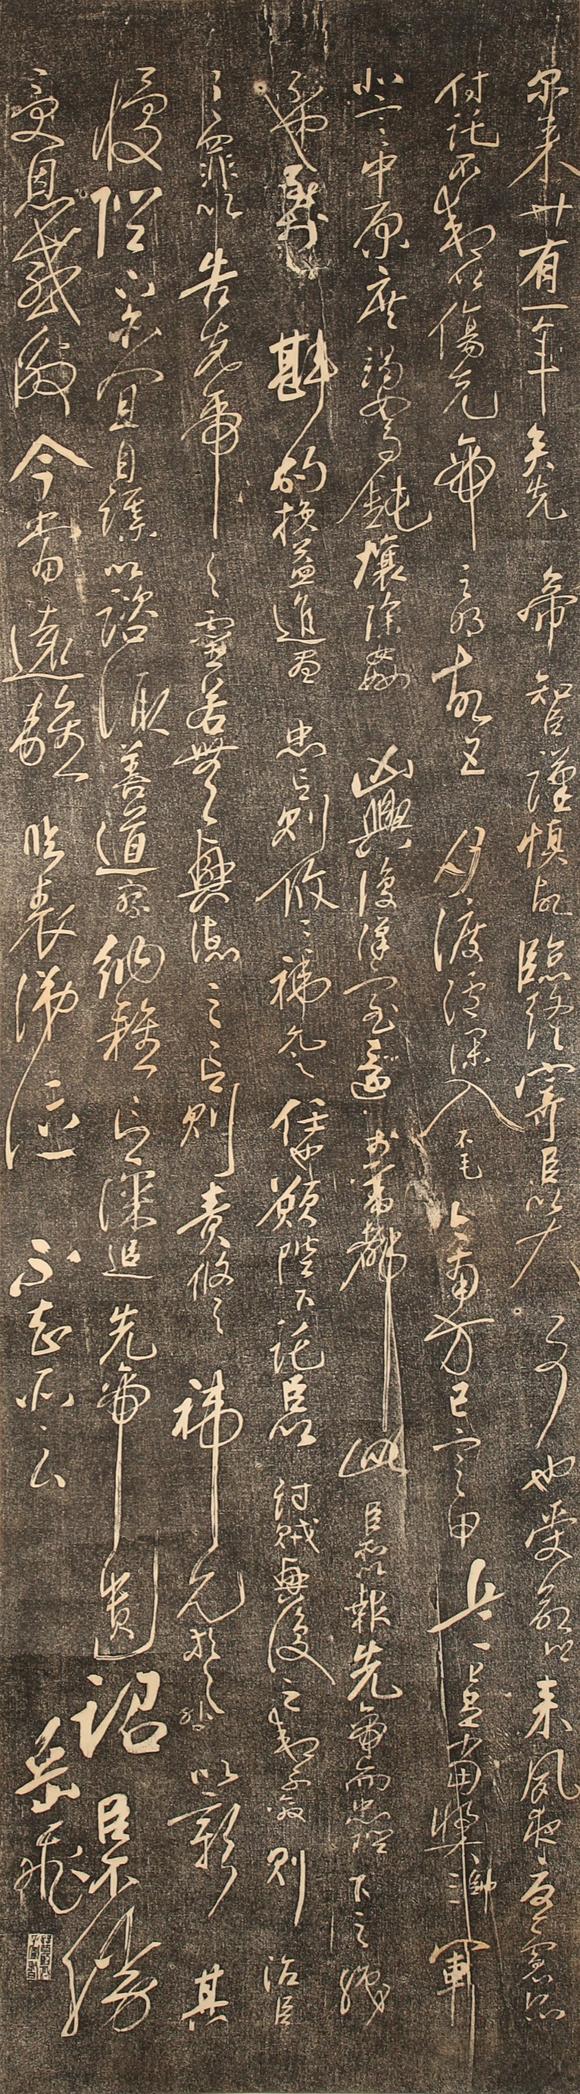 尔来廿有一年矣先帝知臣谨慎故临终寄臣以大
事也受命以来夙夜忧虑恐
付託不效以傷先帝之明故五月渡瀘深入不毛今南方已定甲兵已足當獎帥三軍
北定中原庶竭駑鈍攘除姦凶興復漢室還於舊都此臣所以報先帝而忠陛下之職
也至於斟酌損益進盡忠言則攸之禕允之任也願陛下託臣以討賊興復之效不效則治臣
之罪以告先帝之靈若無興德之言則責攸之禕允等之咎以彰其
慢陛下亦宜自謀以諮諏善道察納雅言深追先帝遺詔臣不勝
受恩感激今當遠離臨表涕泣不知所云
岳飛